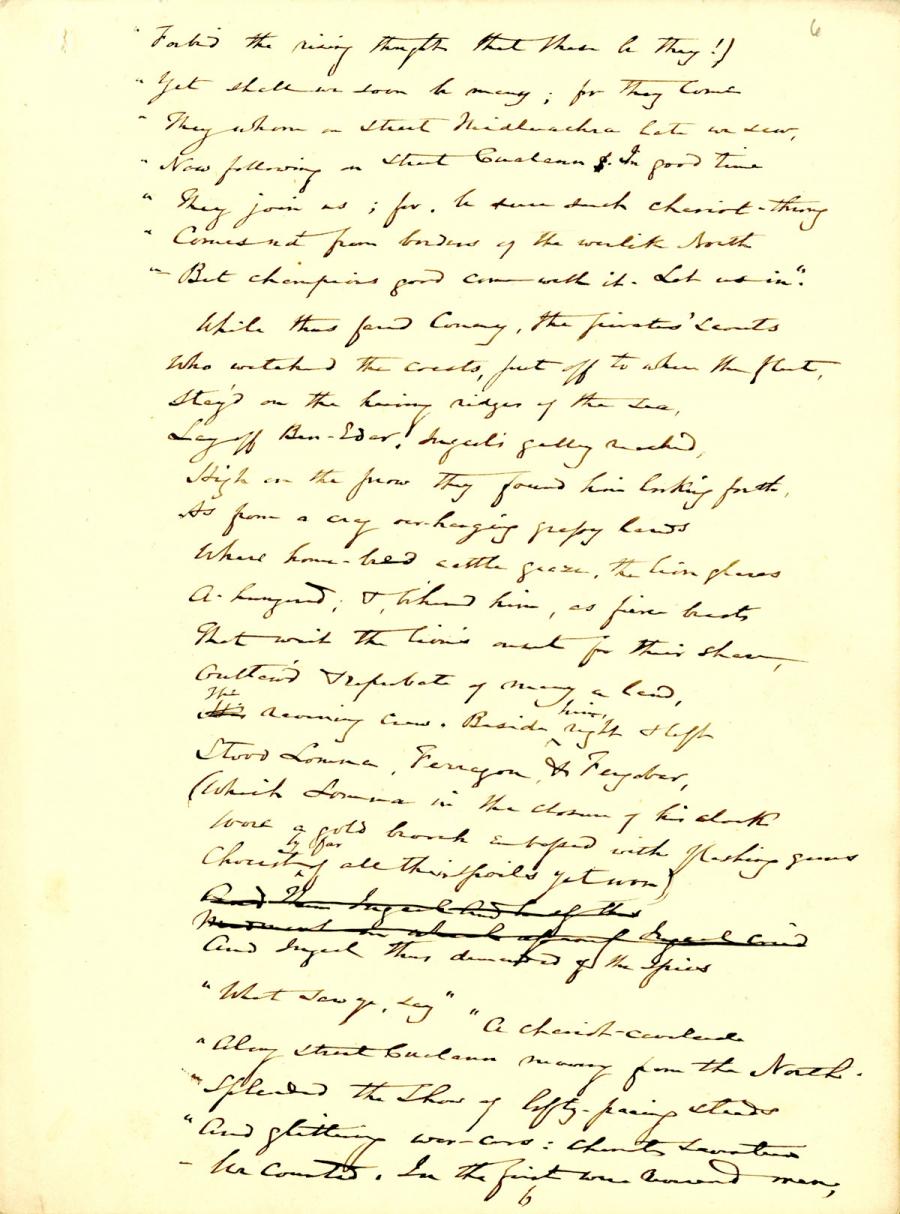 6
"Forbid the rising thought that these be they!)
"Yet shall we soon be many; for they come
"They whom on street Midluachra late we saw,
"Now following on street Cualann. In good time
"They join us; for, be sure such chariot-throng
"Comes not from borders of the warlike North
"But champions good come with it. Let us in".
While thus fared Conary, the pirates' scouts
Who watched the coasts, put off to where the fleet,
Stay'd on the heaving ridges of the sea,
Lay off Ben-Edar. Ingcel's galley reached,
High on the prow they found him looking forth,
As from a crag o'er-hanging grassy lands
Where home-bred cattle graze, the lion glares
A-hungered; &, behind him, as fierce beasts
That wait the lion's onset for their share,
Outlaw'd & reprobate of many a land,
The ravening crew. Beside him, right & left
Stood Lomna, Ferragon, & Fergobar,
(Which Lomna in the closure of his cloak
Wore a gold brooch embossed with flashing gems
Choicest by far of all their spoils yet won)
And Ingcel thus demanded of the spies
"What saw ye, say" "A chariot-cavalcade
"Along street Cualann moving from the North.
"Splendid the show of lofty-pacing steeds
"And glittering war-cars: chariots seventeen
"We counted. In the first were reverend men,
6